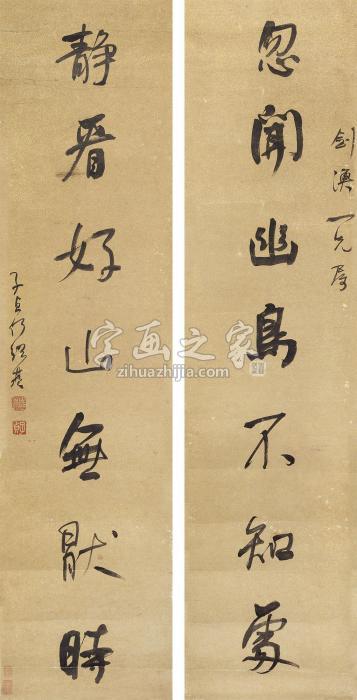 忽聞幽鳥不知處
劍溪一兄屬
靜看好山無厭時
子貞何紹基
字画之家
zihuazhijia.com